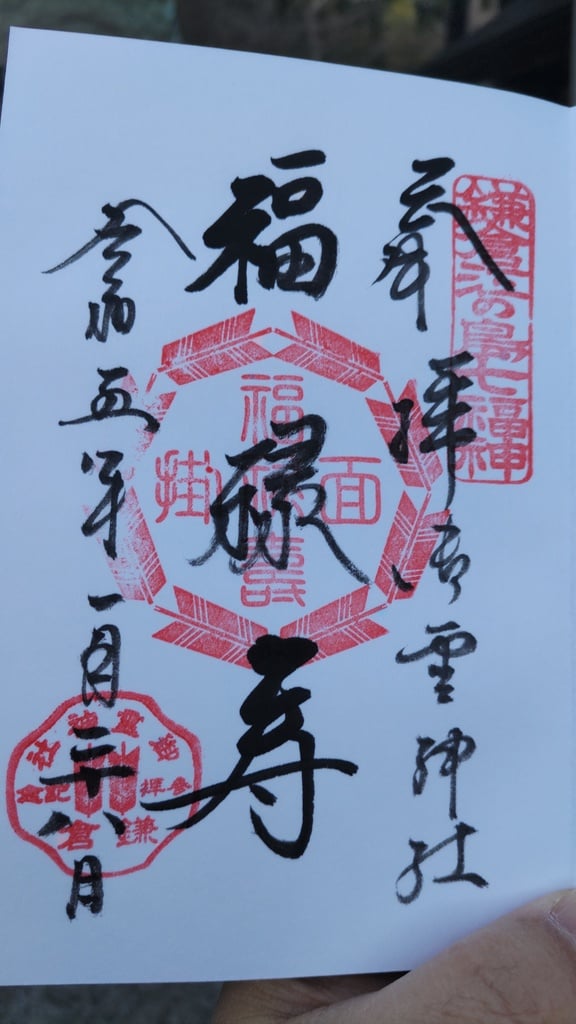 鎌倉江の島七福神
奉拝 御霊神社
福禄寿
面掛
福禄壽
令和五年一月二十八日
参拝記念
鎌倉